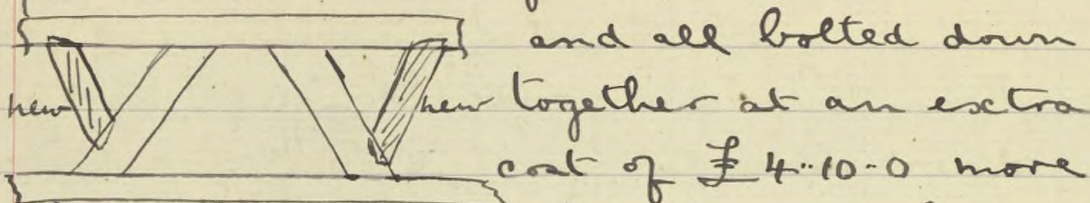 and all bolted down
new new together at an extra
cost of £4..10-0 more